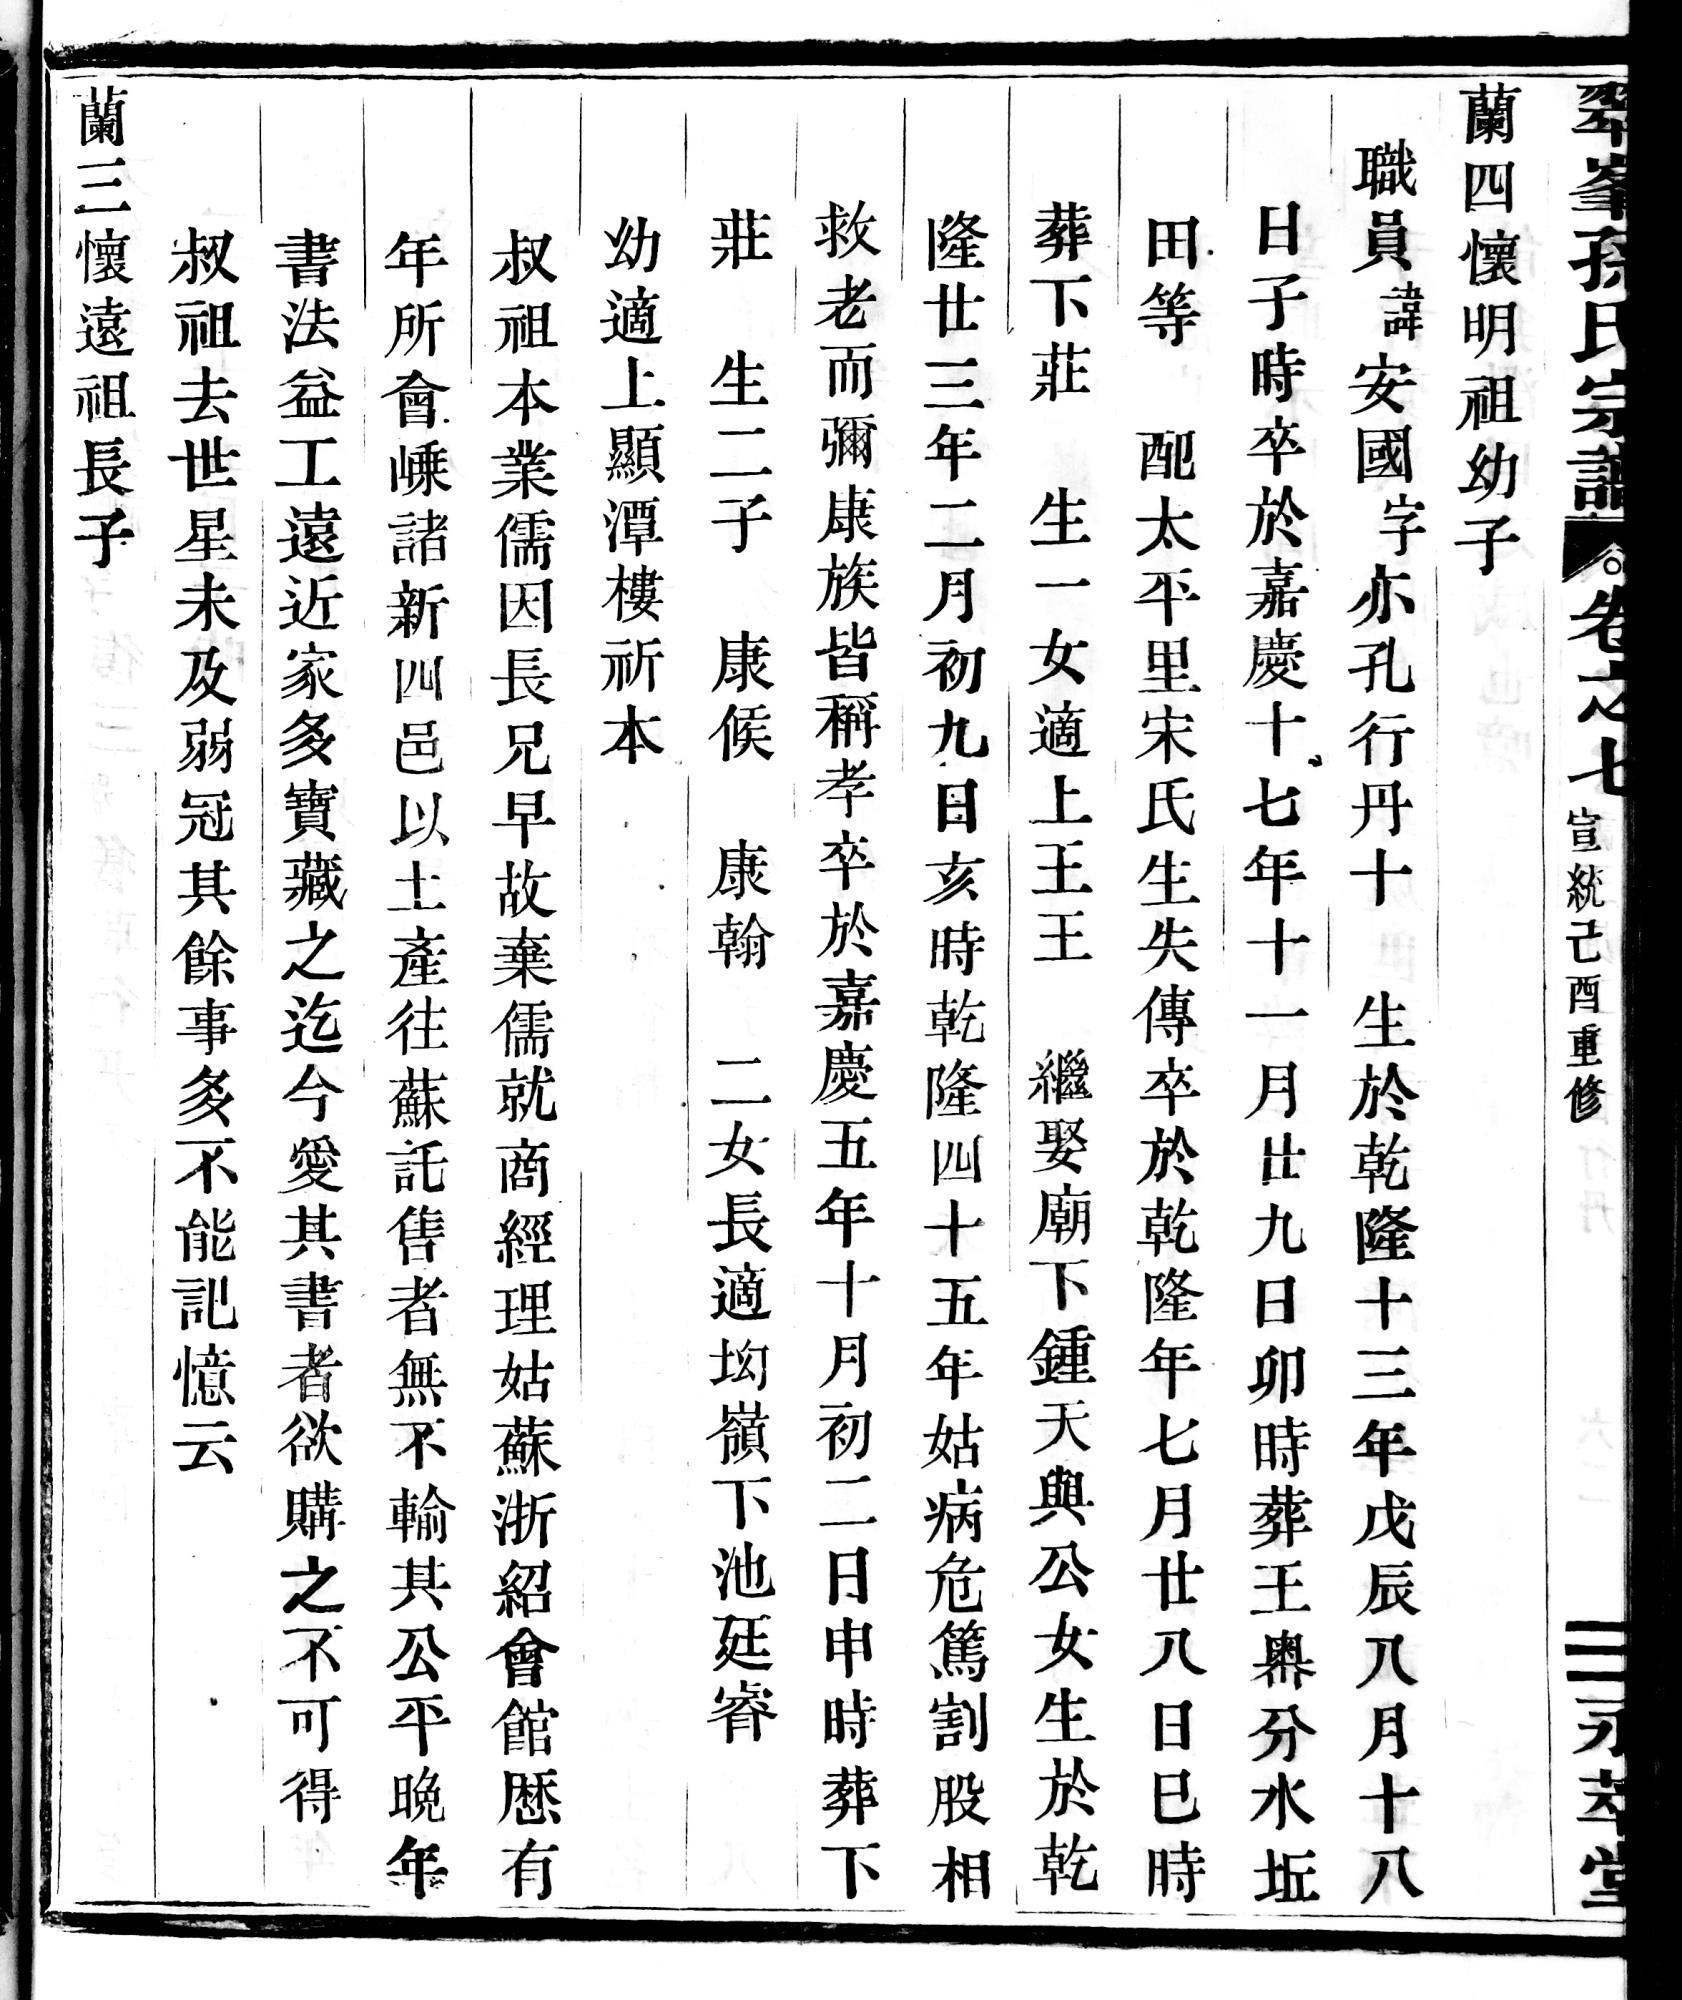 翠峯孫氏宗譜 卷之七 宣統己酉重修 二 永萃堂
蘭四懷明祖幼子
職員諱安國字亦孔行丹十 生於乾隆十三年戊辰八月十八
日子時卒於嘉慶十七年十一月廿九日卯時葬王輿分水坵
田等 配太平里宋氏生失傳卒於乾隆年七月廿八日巳時
葬下莊 生一女適上王王 繼娶廟下鍾天與公女生於乾
隆廿三年二月初九日亥時乾隆四十五年姑病危篤割股相
救老而彌康族皆稱孝卒於嘉慶五年十月初二日申時葬下
莊 生二子 康候 康翰 二女長適坳嶺下池廷睿
幼適上顯潭樓祈本
叔祖本業儒因長兄早故棄儒就商經理姑蘇浙紹會館歷有
年所會嵊諸新四邑以土產往蘇託售者無不輸其公平晚年
書法益工遠近家多寶藏之迄今愛其書者欲購之不可得
叔祖去世星未及弱冠其餘事多不能記憶云
蘭三懷遠祖長子